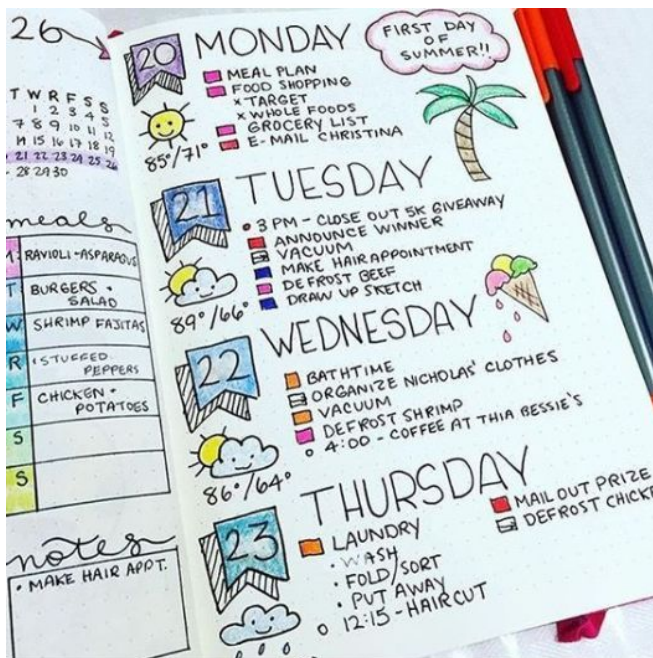 26
T W R F S S
1 2 3 4 5
7 8 9 10 11 12
14 15 16 17 18 19
21 22 23 24 25 26
28 29 30
meals
M RAVIOLI - ASPARAGUS
T BURGERS •
SALAD
W SHRIMP FAJITAS
R • STUFFED
PEPPERS
F CHICKEN •
POTATOES
S
S
notes
• MAKE HAIR APPT.
20 MONDAY
FIRST DAY
OF
SUMMER!!
MEAL PLAN
FOOD SHOPPING
x TARGET
x WHOLE FOODS
GROCERY LIST
E-MAIL CHRISTINA
85°/71°
21 TUESDAY
• 3 PM - CLOSE OUT 5K GIVEAWAY
ANNOUNCE WINNER
VACUUM
MAKE HAIR APPOINTMENT
DEFROST BEEF
DRAW UP SKETCH
89°/66°
22 WEDNESDAY
BATHTIME
ORGANIZE NICHOLAS' CLOTHES
VACUUM
DEFROST SHRIMP
○ 4:00 - COFFEE AT THIA BESSIE'S
86°/64°
23 THURSDAY
LAUNDRY
• WASH
• FOLD/SORT
• PUT AWAY
○ 12:15 - HAIRCUT
MAIL OUT PRIZE
DEFROST CHICKE